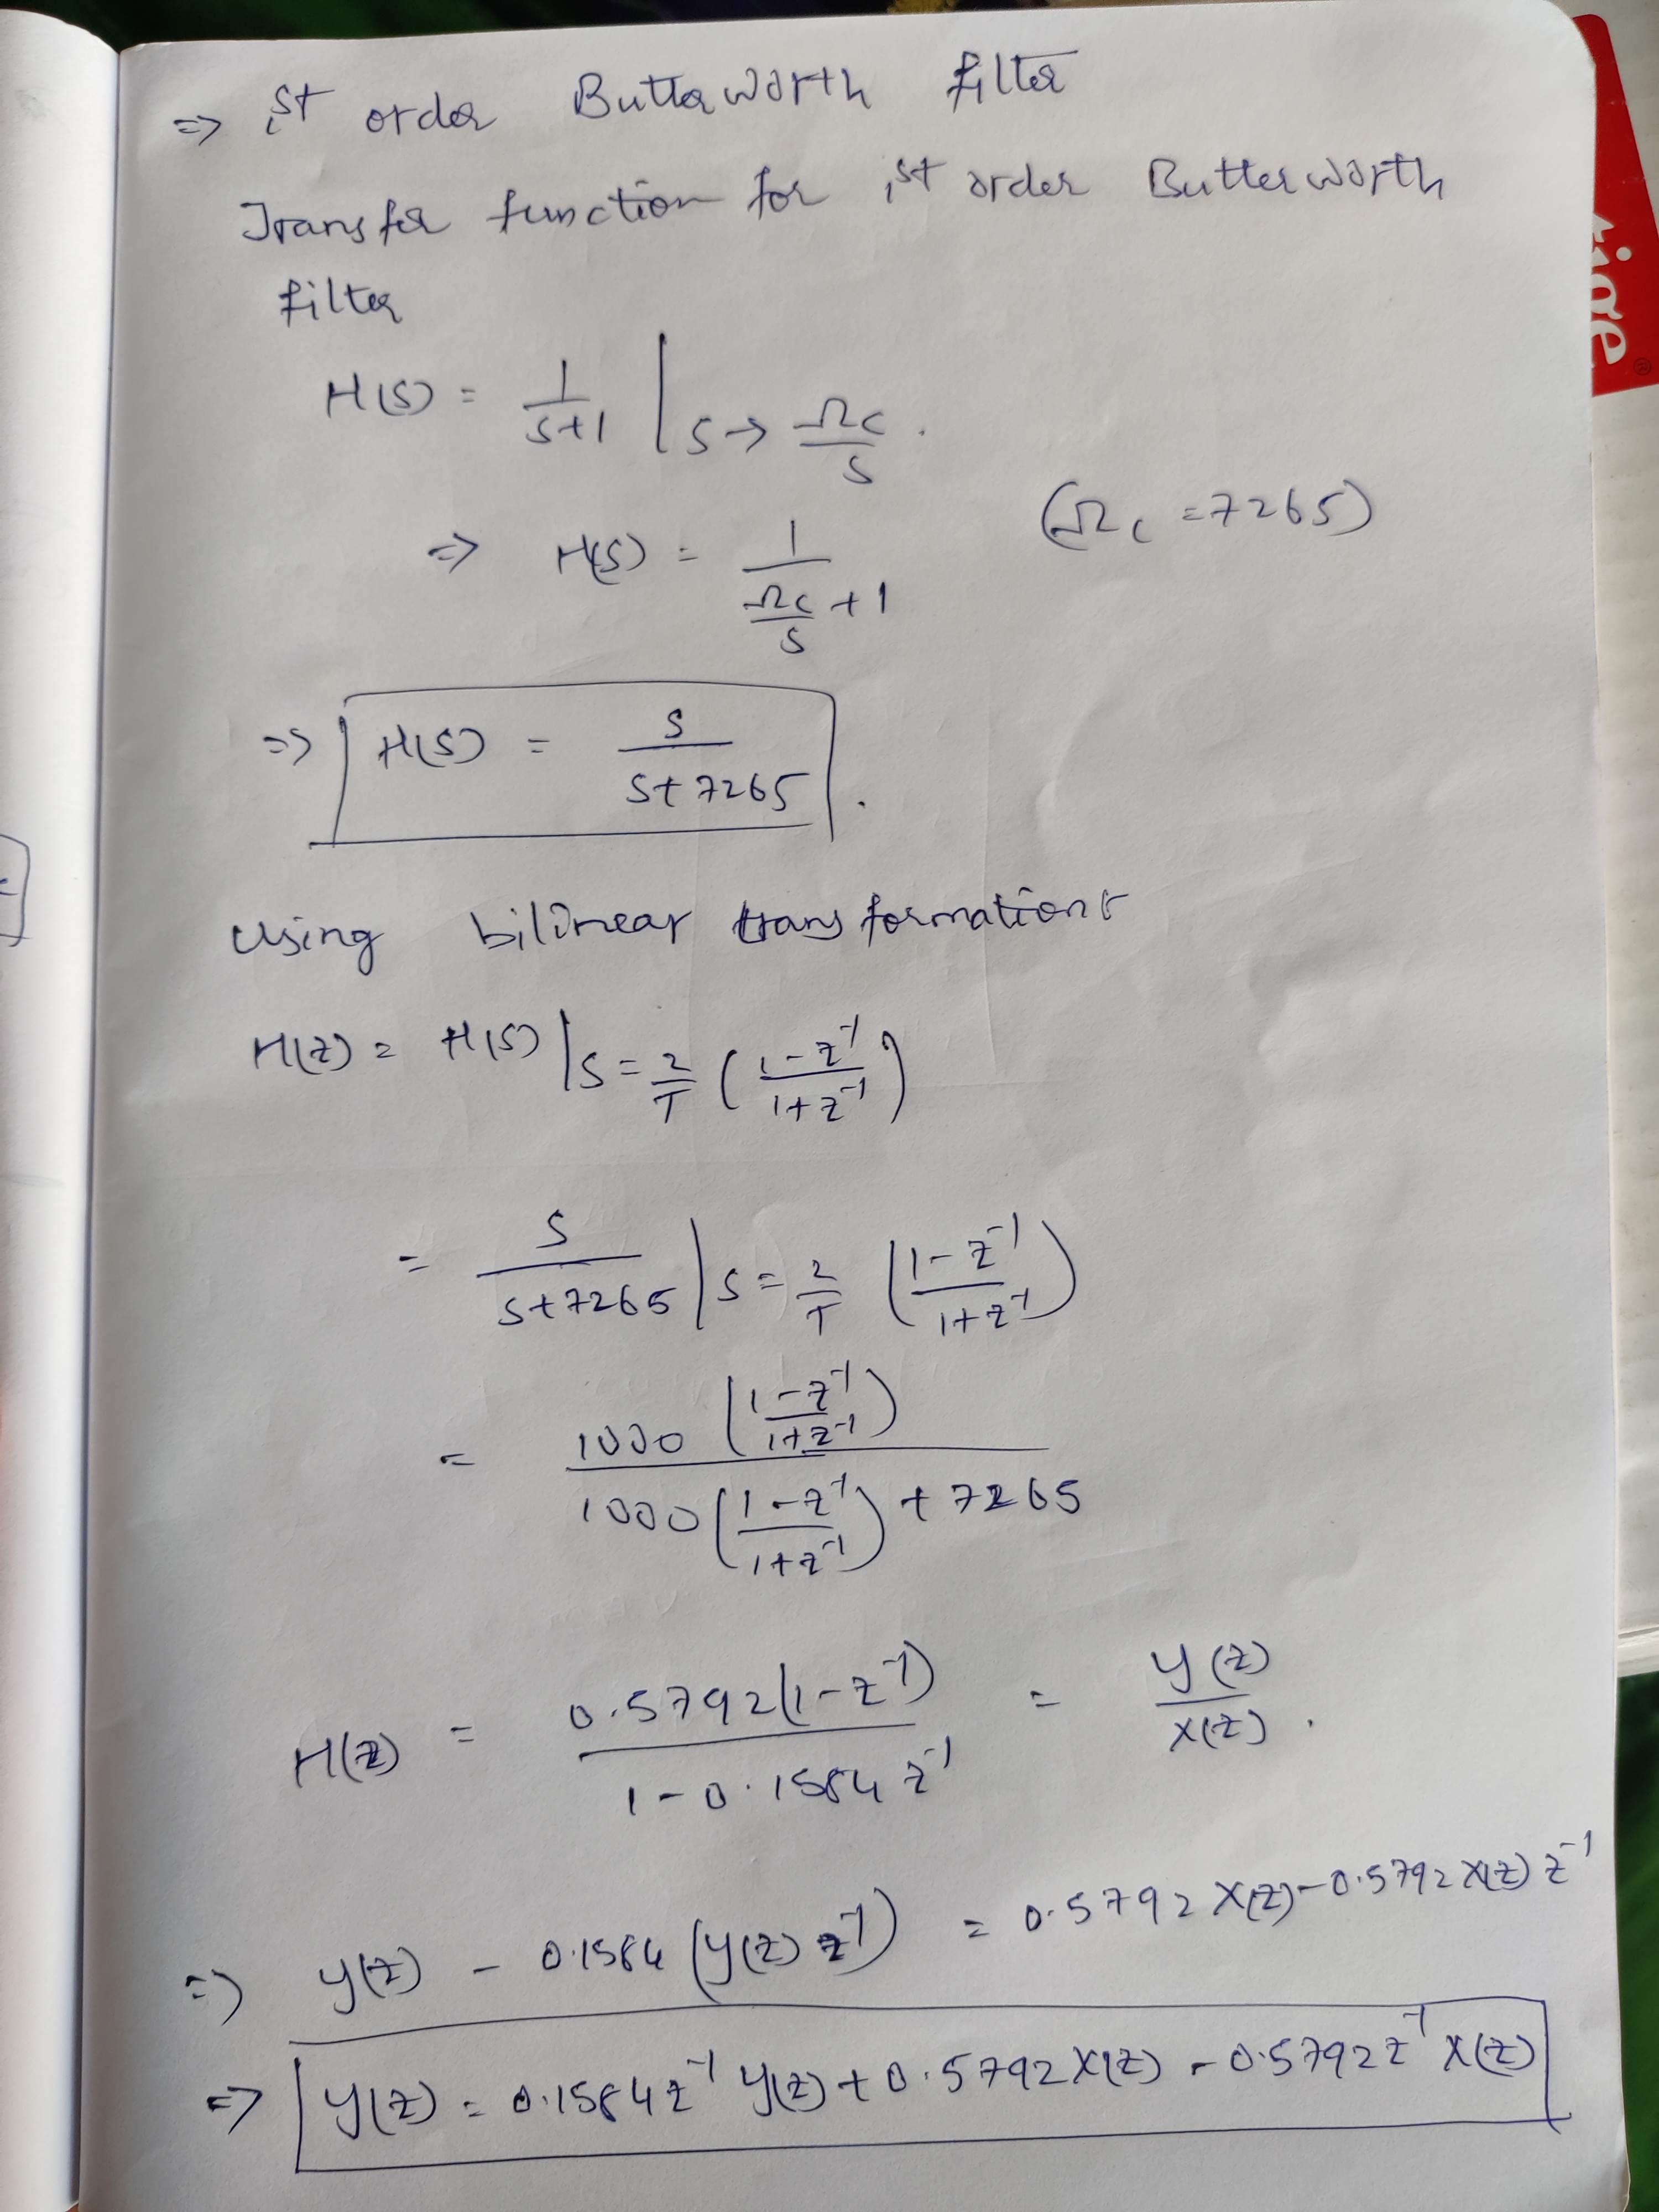 ⇒ 1st order Butterworth filter
Transfer function for 1st order Butterworth
filter
H(s) = 1/(s+1) | s → Ωc/s .
(Ωc = 7265)
⇒ H(s) = 1/(Ωc/s + 1)
⇒ H(s) = s/(s+7265) .
Using bilinear transformations
H(z) = H(s) | s = 2/T ((1-z⁻¹)/(1+z⁻¹))
= s/(s+7265) | s = 2/T ((1-z⁻¹)/(1+z⁻¹))
= 1000((1-z⁻¹)/(1+z⁻¹)) / (1000((1-z⁻¹)/(1+z⁻¹)) + 7265)
H(z) = 0.5792(1-z⁻¹)/(1-0.1584z⁻¹) = y(z)/x(z) .
⇒ y(z) - 0.1584(y(z)z⁻¹) = 0.5792x(z) - 0.5792x(z)z⁻¹
⇒ y(z) = 0.1584z⁻¹ y(z) + 0.5792x(z) - 0.5792z⁻¹ x(z)